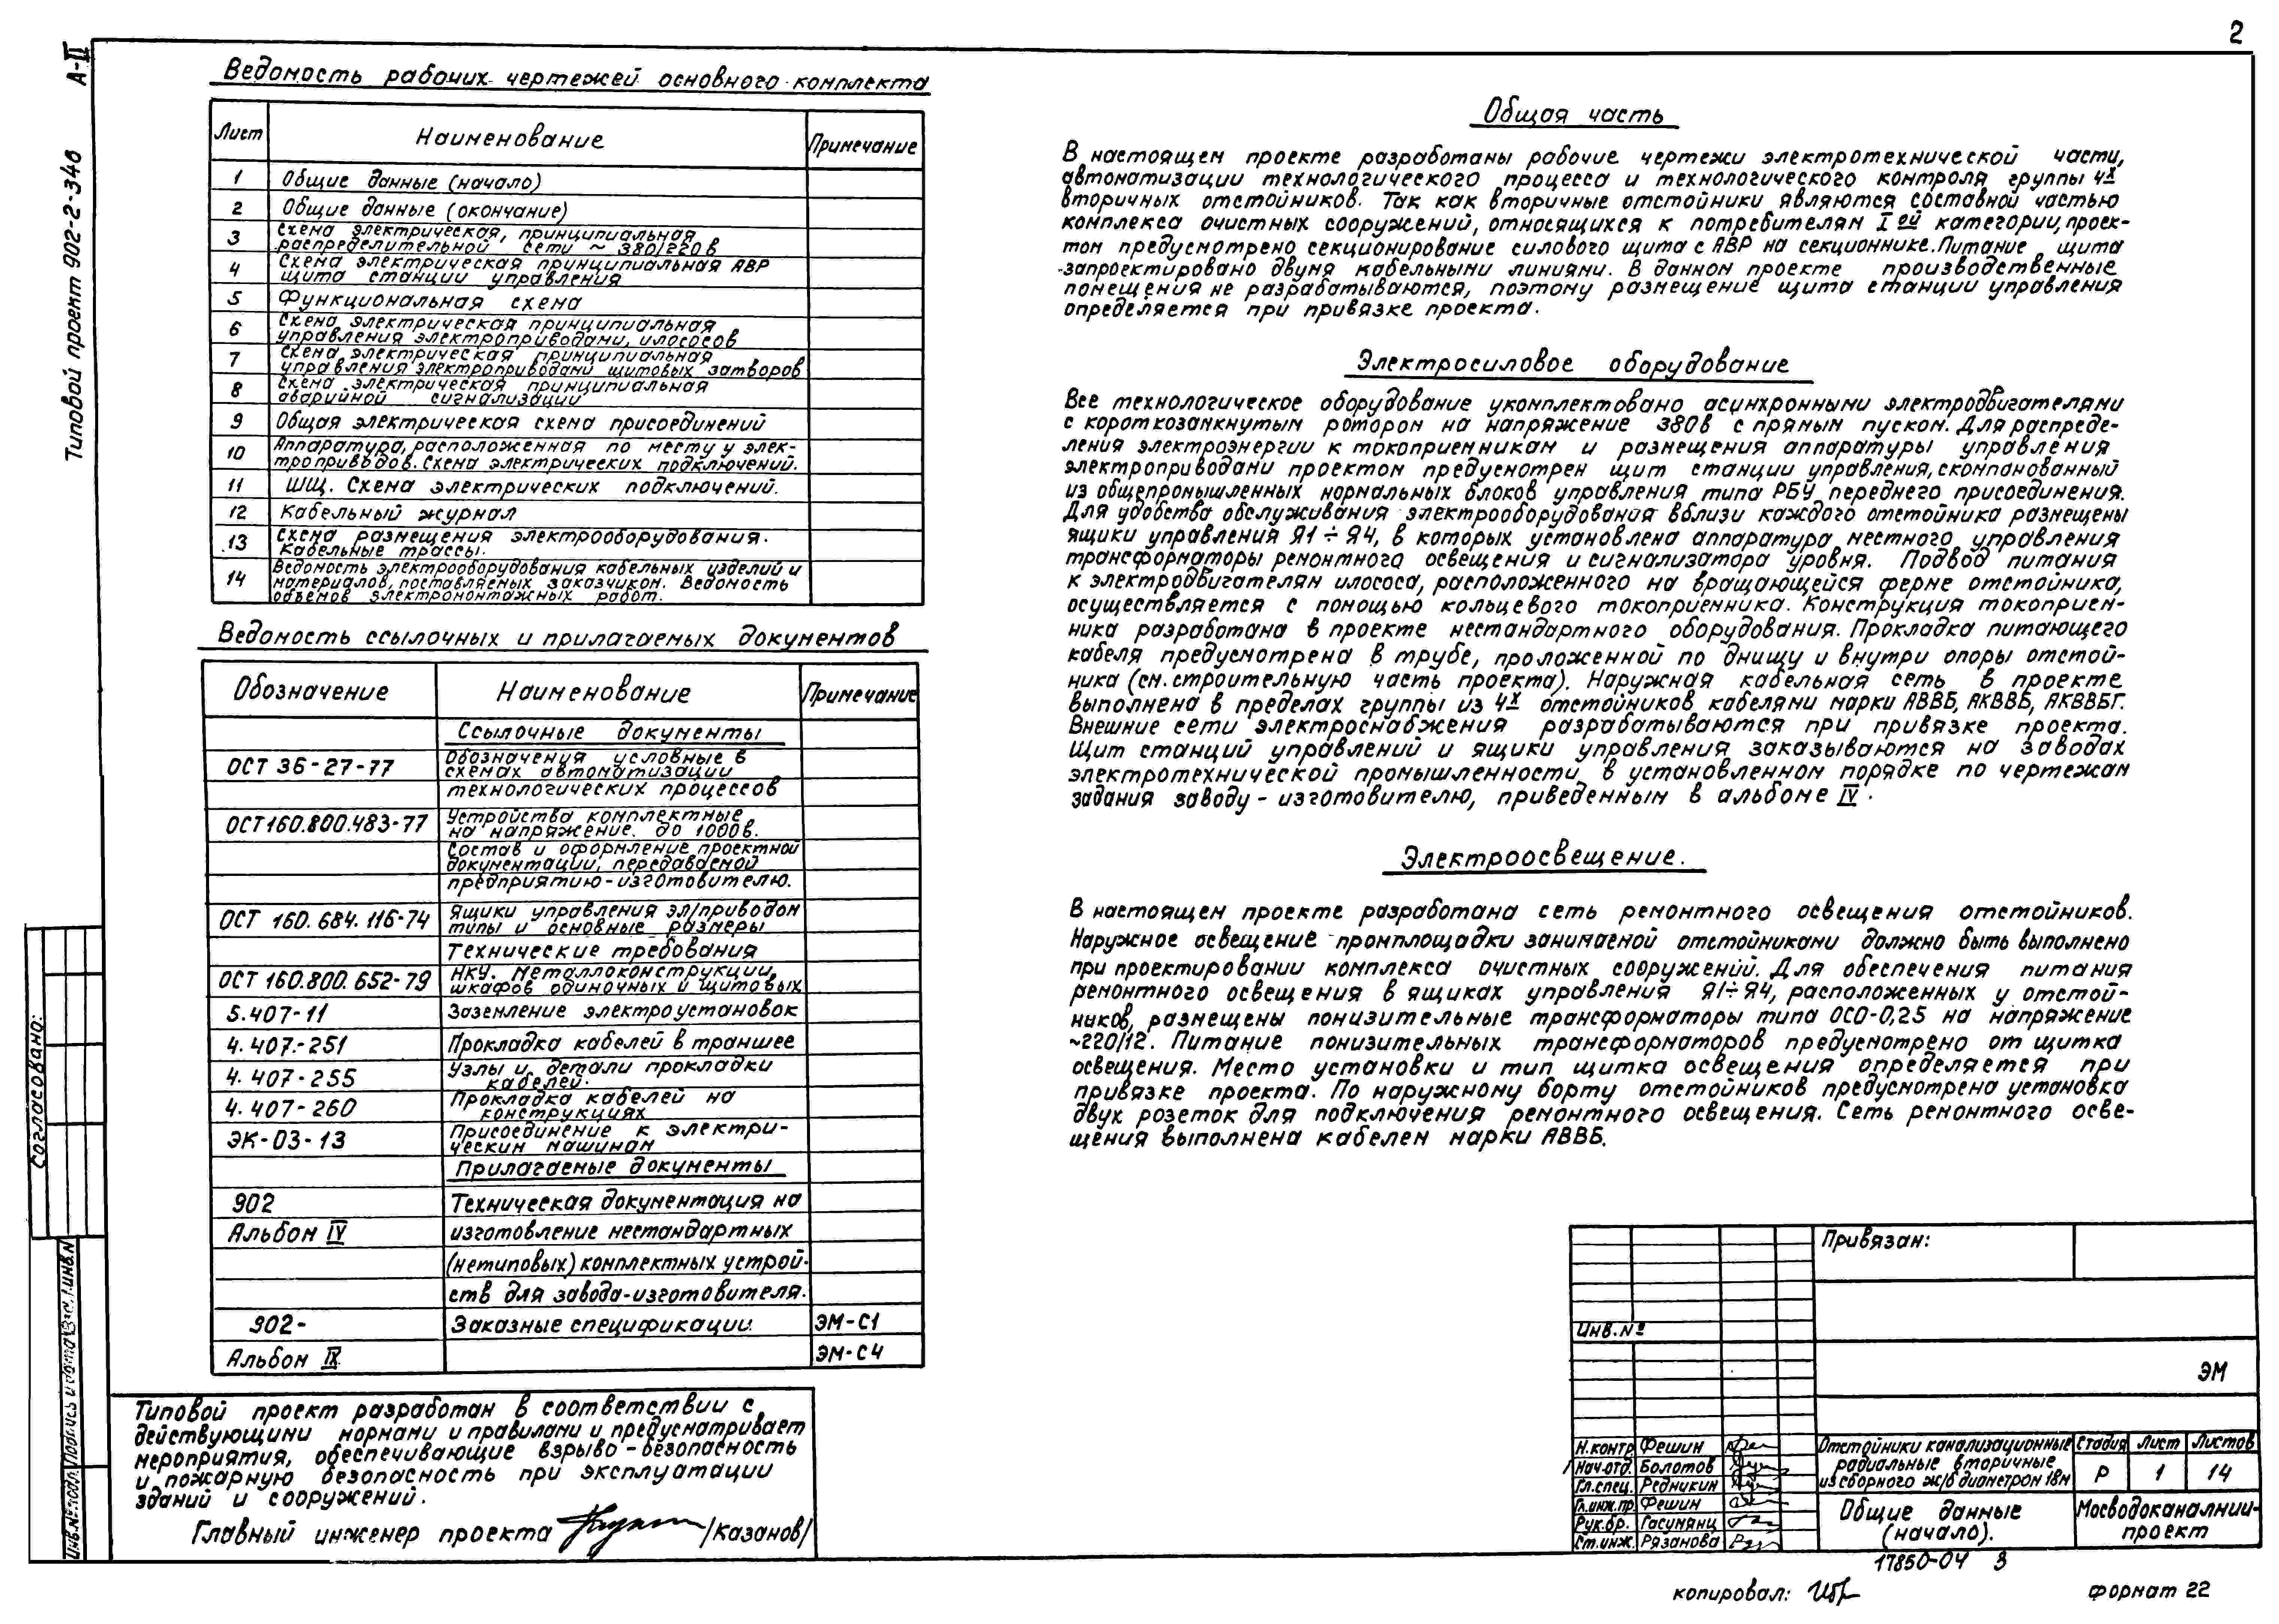 2
А-II
Типовой проект 902-2-346
Ведомость рабочих чертежей основного комплекта
Лист Наименование Примечание
1 Общие данные (начало)
2 Общие данные (окончание)
3 Схема электрическая, принципиальная
распределительной сети ~ 380/220в
4 Схема электрическая принципиальная АВР
щита станции управления
5 Функциональная схема
6 Схема электрическая принципиальная
управления электроприводами, илососов
7 Схема электрическая принципиальная
управления электроприводами щитовых затворов
8 Схема электрическая принципиальная
аварийной сигнализации
9 Общая электрическая схема присоединений
10 Аппаратура, расположенная по месту у элек-
троприводов. Схема электрических подключений.
11 ШЩ. Схема электрических подключений.
12 Кабельный журнал
13 Схема размещения электрооборудования.
Кабельные трассы.
14 Ведомость электрооборудования кабельных изделий и
материалов, поставляемых заказчиком. Ведомость
объемов электромонтажных работ.
Ведомость ссылочных и прилагаемых документов
Обозначение Наименование Примечание
Ссылочные документы
ОСТ 36-27-77 Обозначения условные в
схемах автоматизации
технологических процессов
ОСТ160.800.483-77 Устройства комплектные
на напряжение до 1000в.
Состав и оформление проектной
документации, передаваемой
предприятию-изготовителю.
ОСТ 160.684.116-74 Ящики управления эл/приводом
типы и основные размеры
Технические требования
ОСТ 160.800.652-79 НКУ. Металлоконструкции
шкафов одиночных и щитовых
5.407-11 Заземление электроустановок
4.407-251 Прокладка кабелей в траншее
4.407-255 Узлы и детали прокладки
кабелей.
4.407-260 Прокладка кабелей на
конструкциях
ЭК-03-13 Присоединение к электри-
ческим машинам
Прилагаемые документы
902 Техническая документация на
Альбом IV изготовление нестандартных
(нетиповых) комплектных устрой-
ств для завода-изготовителя.
902- Заказные спецификации ЭМ-С1
Альбом IX ЭМ-С4
Типовой проект разработан в соответствии с
действующими нормами и правилами и предусматривает
мероприятия, обеспечивающие взрыво-безопасность
и пожарную безопасность при эксплуатации
зданий и сооружений.
Главный инженер проекта /Казанов/
Общая часть
В настоящем проекте разработаны рабочие чертежи электротехнической части,
автоматизации технологического процесса и технологического контроля группы 4х
вторичных отстойников. Так как вторичные отстойники являются составной частью
комплекса очистных сооружений, относящихся к потребителям I ой категории, проек-
том предусмотрено секционирование силового щита с АВР на секционнике. Питание щита
запроектировано двумя кабельными линиями. В данном проекте производственные
помещения не разрабатываются, поэтому размещение щита станции управления
определяется при привязке проекта.
Электросиловое оборудование
Все технологическое оборудование укомплектовано асинхронными электродвигателями
с короткозамкнутым ротором на напряжение 380в с прямым пуском. Для распреде-
ления электроэнергии к токоприемникам и размещения аппаратуры управления
электроприводами проектом предусмотрен щит станции управления, скомпанованный
из общепромышленных нормальных блоков управления типа РБУ переднего присоединения.
Для удобства обслуживания электрооборудования вблизи каждого отстойника размещены
ящики управления Я1÷Я4, в которых установлена аппаратура местного управления
трансформаторы ремонтного освещения и сигнализатора уровня. Подвод питания
к электродвигателям илососа, расположенного на вращающейся ферме отстойника,
осуществляется с помощью кольцевого токоприемника. Конструкция токоприем-
ника разработана в проекте нестандартного оборудования. Прокладка питающего
кабеля предусмотрена в трубе, проложенной по днищу и внутри опоры отстой-
ника (см. строительную часть проекта). Наружная кабельная сеть в проекте
выполнена в пределах группы из 4х отстойников кабелями марки АВВБ, АКВВБ, АКВВБГ.
Внешние сети электроснабжения разрабатываются при привязке проекта.
Щит станций управлений и ящики управления заказываются на заводах
электротехнической промышленности в установленном порядке по чертежам
задания заводу-изготовителю, приведенным в альбоме IV.
Электроосвещение.
В настоящем проекте разработана сеть ремонтного освещения отстойников.
Наружное освещение промплощадки занимаемой отстойниками должно быть выполнено
при проектировании комплекса очистных сооружений. Для обеспечения питания
ремонтного освещения в ящиках управления Я1÷Я4, расположенных у отстой-
ников, размещены понизительные трансформаторы типа ОСО-0,25 на напряжение
~220/12. Питание понизительных трансформаторов предусмотрено от щитка
освещения. Место установки и тип щитка освещения определяется при
привязке проекта. По наружному борту отстойников предусмотрена установка
двух розеток для подключения ремонтного освещения. Сеть ремонтного осве-
щения выполнена кабелем марки АВВБ.
Согласовано:
Инв.№ подл. Подпись и дата Взам.инв.№
Привязан:
Инв.№
ЭМ
Н.контр Фешин
Нач.отд Болотов
Гл.спец. Редникин
Гл.инж.пр. Фешин
Рук.бр. Гасумянц
Ст.инж. Рязанова
Отстойники канализационные
радиальные вторичные
из сборного ж/б диаметром 18м
Стадия Лист Листов
Р 1 14
Общие данные
(начало).
Мосводоканалнии-
проект
17850-04 3
копировал:
формат 22